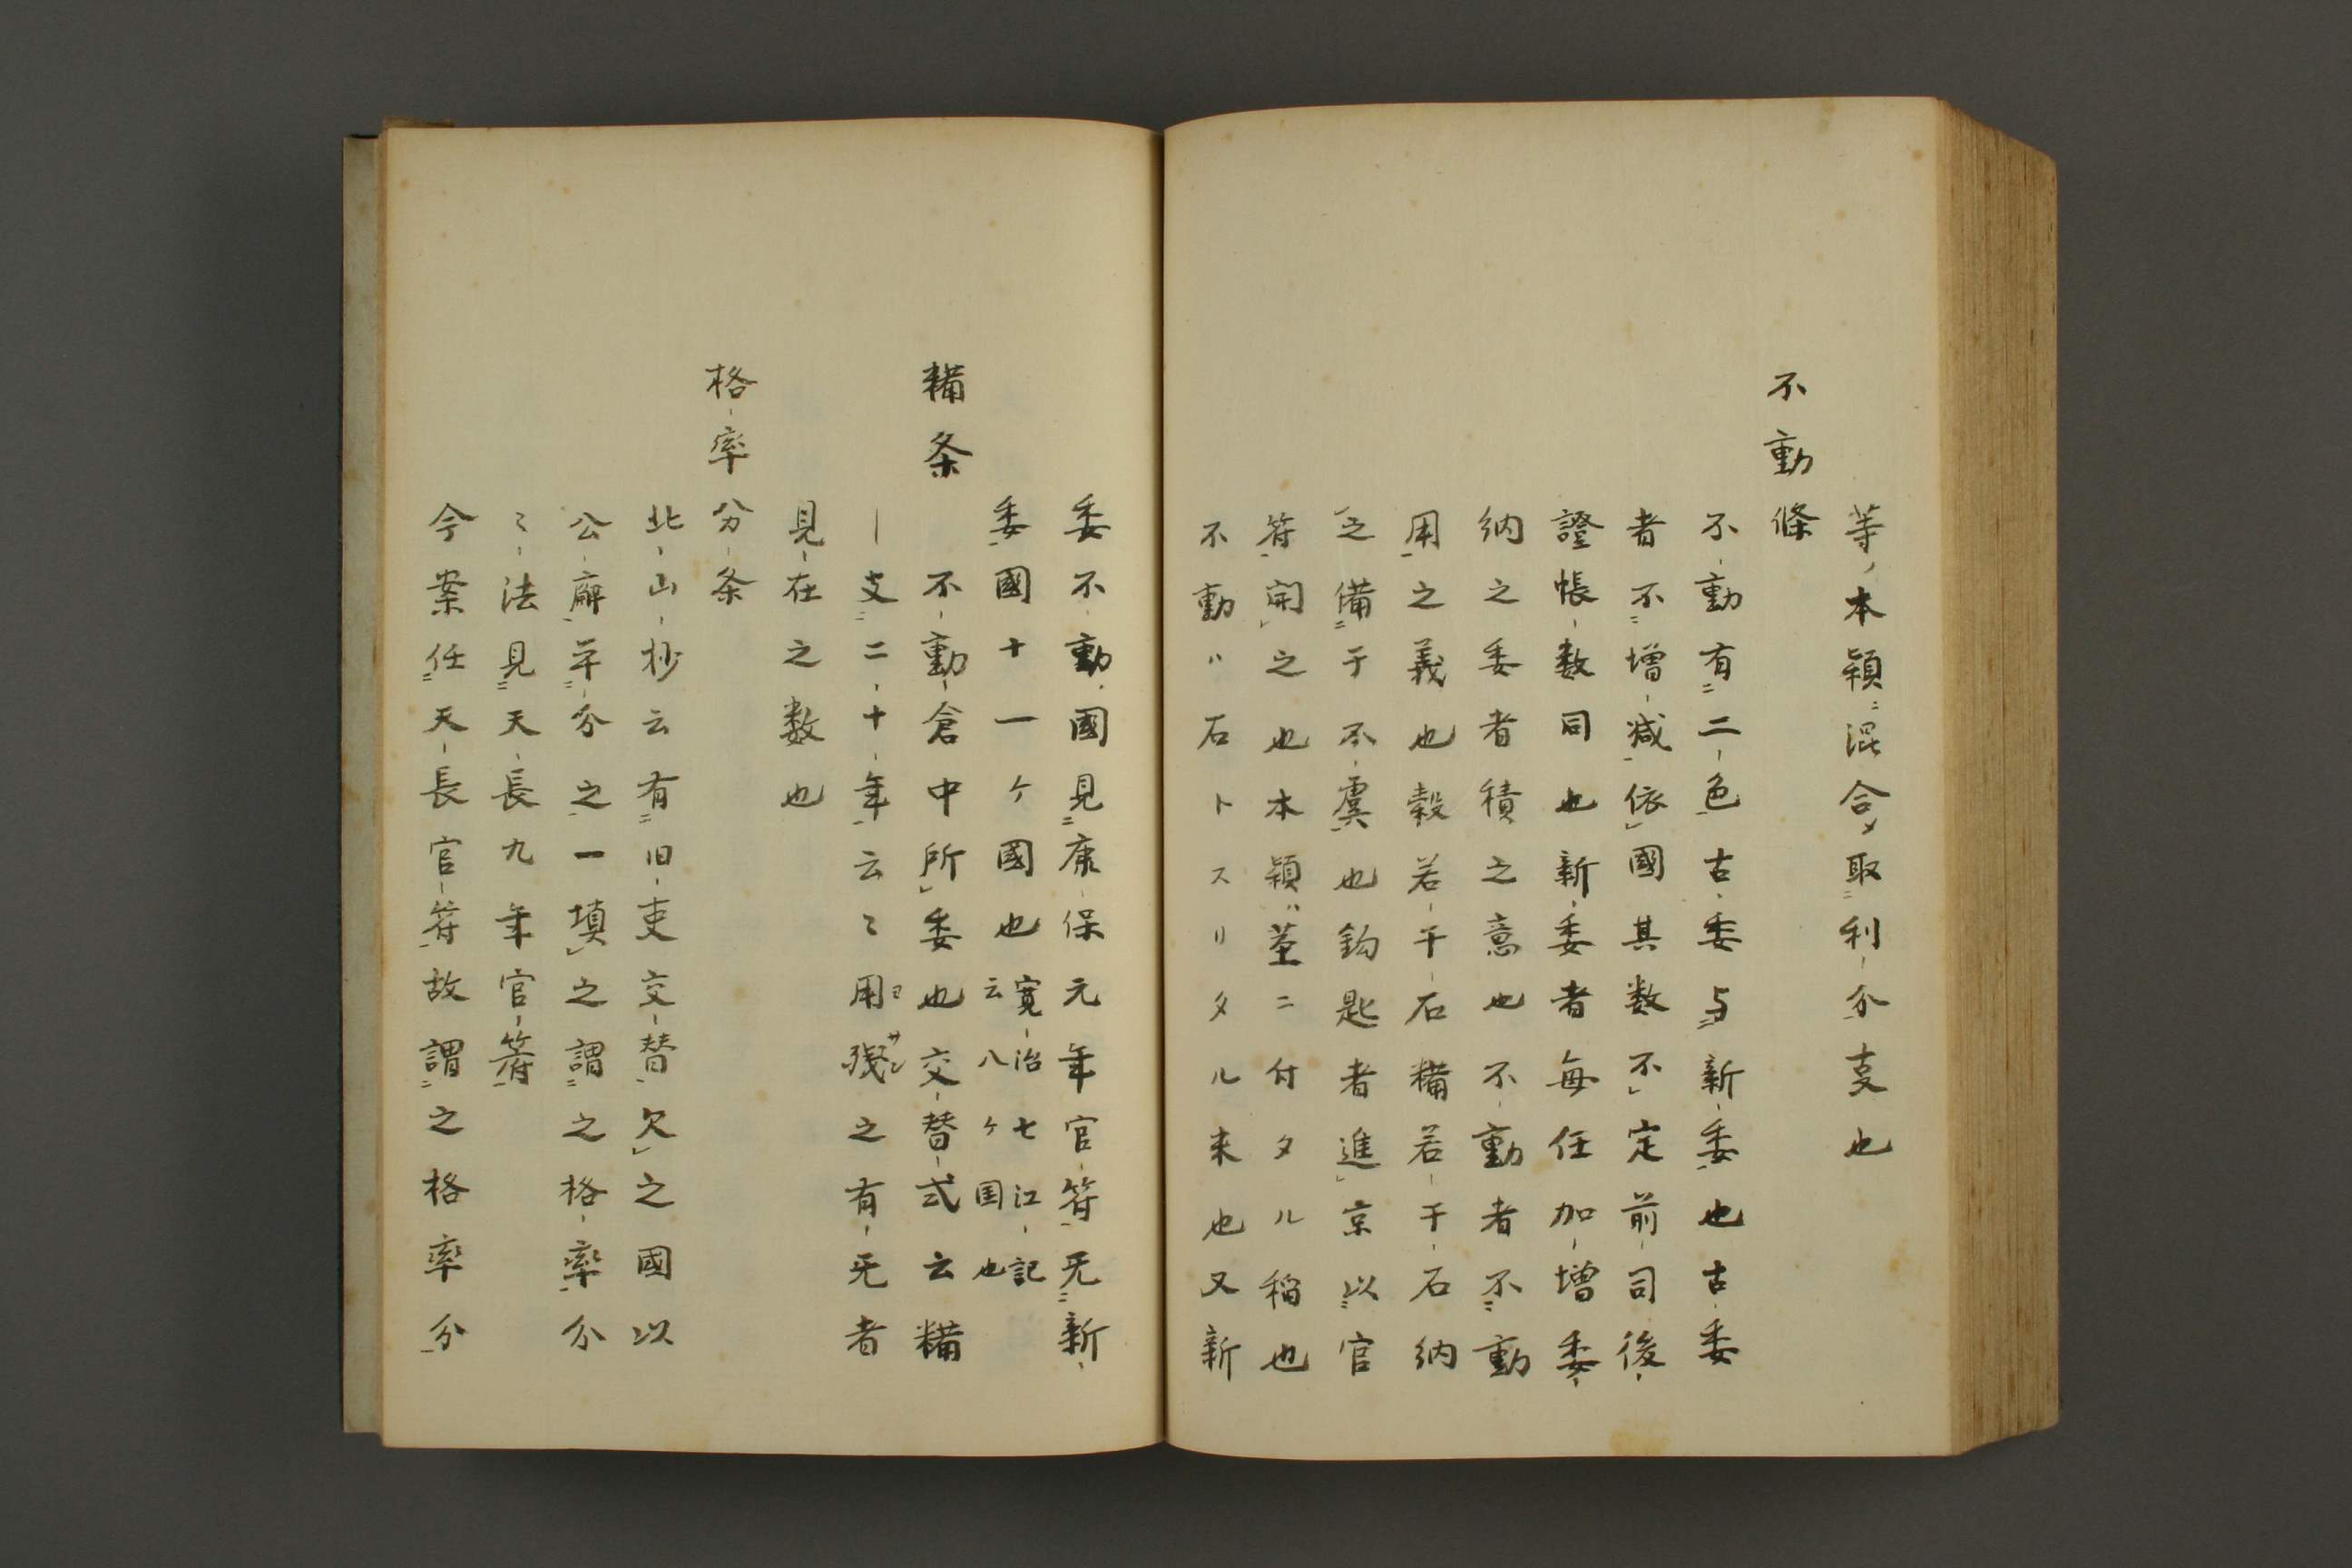 等ノ本穎ニ混合〆取利分支也
不動條
不動有二色古委与新委也古委
者不増減依國其数不定前司後
證帳数同也新委者毎任加増委
納之委者積之意也不動者不動
用之義也穀若干石糒若干石納
之備于不虞也鈎匙者進京以官
符開之也本穎ハ茎ニ付タル稲也
不動ハ石トスリタル米也又新
委不動國見康保元年官符无新
委國十一ヶ國也寛治七江記云八ヶ国也
糒条
不動倉中所委也交替式云糒
一支二十年云〻用残之有无者
見在之数也
格率分条
北山抄云有旧吏交替欠之國以
公廨平分之一填之謂之格率分
〻法見天長九年官符
今案任天長官符故謂之格率分